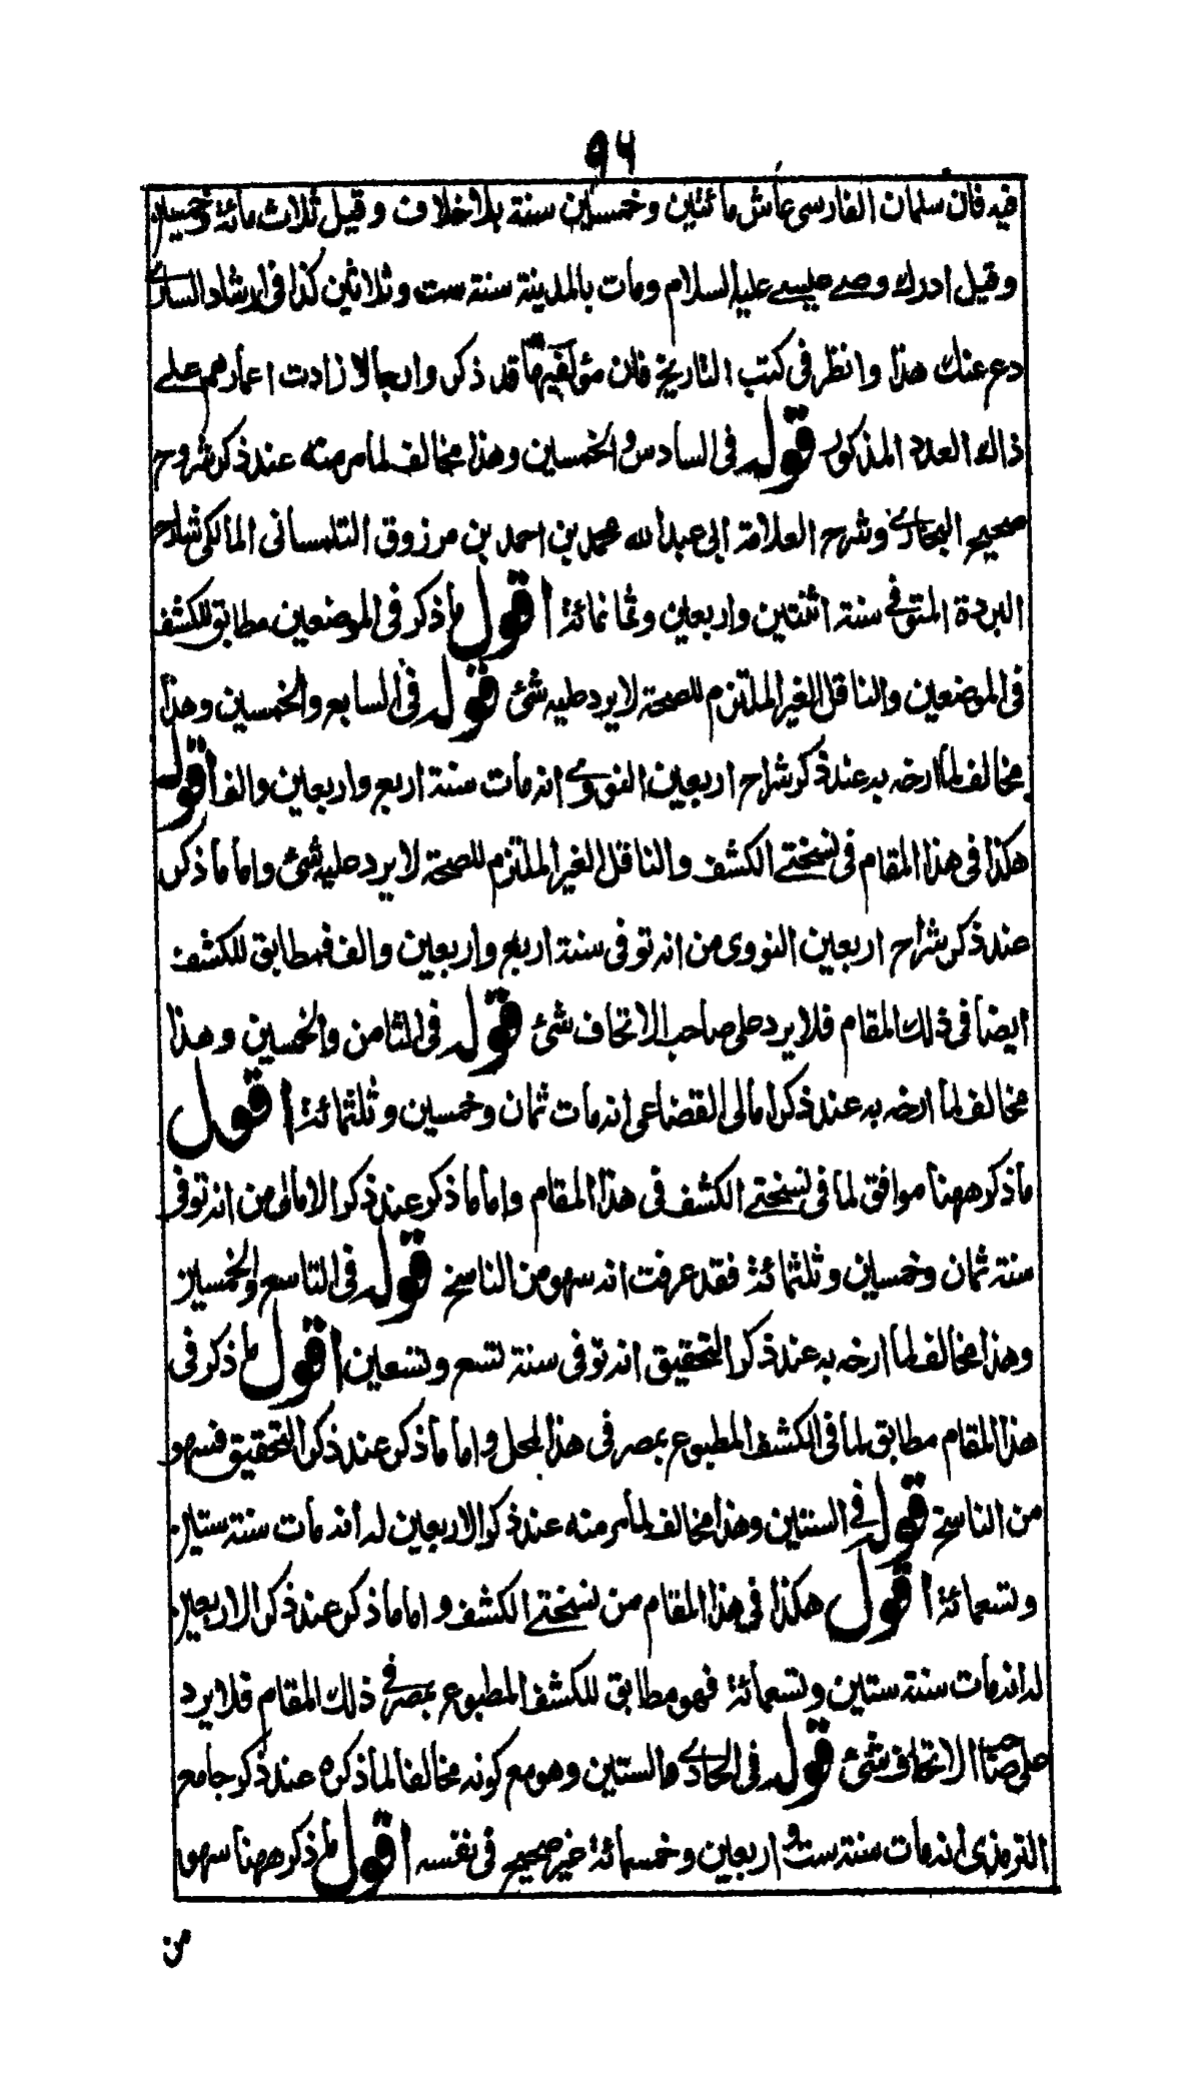 ٩٦
فيه فان سلمان الفارسى عاش مائتين وخمسين سنة بلا خلاف وقيل ثلاث مائة وخمسين
وقيل ادرك وصے عيسے عليه السلام ومات بالمدينة سنة ست وثلاثين كذا فى ارشاد السارے
دع عنك هذا وانظر فى كتب التاريخ فان مؤلفيها قد ذكروا رجالا زادت اعمارهم علے
ذالك العدد المذكور قوله فى السادس والخمسين وهذا مخالف لما مر منه عند ذكر شروح
صحيح البخارے وشرح العلامة ابى عبد الله محمد بن احمد بن مرزوق التلمسانى المالكى شارح
البردة المتوفے سنة اثنتين واربعين وثمانمائة اقول ما ذكر فى الموضعين مطابق للكشف
فى الموضعين والناقل الغير الملتزم للصحة لا يرد عليه شئ قوله فى السابع والخمسين وهذا
مخالف لما ارخه به عند ذكر شراح اربعين النووے انه مات سنة اربع واربعين والف اقول
هكذا فى هذا المقام فى نسختے الكشف والناقل الغير الملتزم للصحة لا يرد عليه شئ واما ما ذكر
عند ذكر شراح اربعين النووى من انه توفى سنة اربع واربعين والف فمطابق للكشف
ايضا فى ذلك المقام فلا يرد على صاحب الاتحاف شئ قوله فى الثامن والخمسين وهذا
مخالف لما ارخه به عند ذكر امالى القضاعى انه مات ثمان وخمسين وثلثمائة اقول
ما ذكر ههنا موافق لما فى نسختے الكشف فى هذا المقام واما ما ذكر عند ذكر الامالى من انه توفى
سنة ثمان وخمسين وثلثمائة فقد عرفت انه سهو من الناسخ قوله فى التاسع والخمسين
وهذا مخالف لما ارخه به عند ذكر التحقيق انه توفى سنة تسع وتسعين اقول ما ذكر فى
هذا المقام مطابق لما فى الكشف المطبوع بمصر فى هذا المحل واما ما ذكر عند ذكر التحقيق فسهو
من الناسخ قوله فے الستين وهذا مخالف لما مر منه عند ذكر الاربعين له انه مات سنة ستين
وتسعمائة اقول هكذا فى هذا المقام من نسختے الكشف واما ما ذكر عند ذكر الاربعين
له انه مات سنة ستين وتسعمائة فهو مطابق للكشف المطبوع بمصر فے ذلك المقام فلا يرد
على صاحب الاتحاف شئ قوله فى الحادے والستين وهو مع كونه مخالفا لما ذكره عند ذكر جامع
الترمذى انه مات سنة ست واربعين وخمسمائة غير صحيح فى نفسه اقول ما ذكر ههنا سهو
من